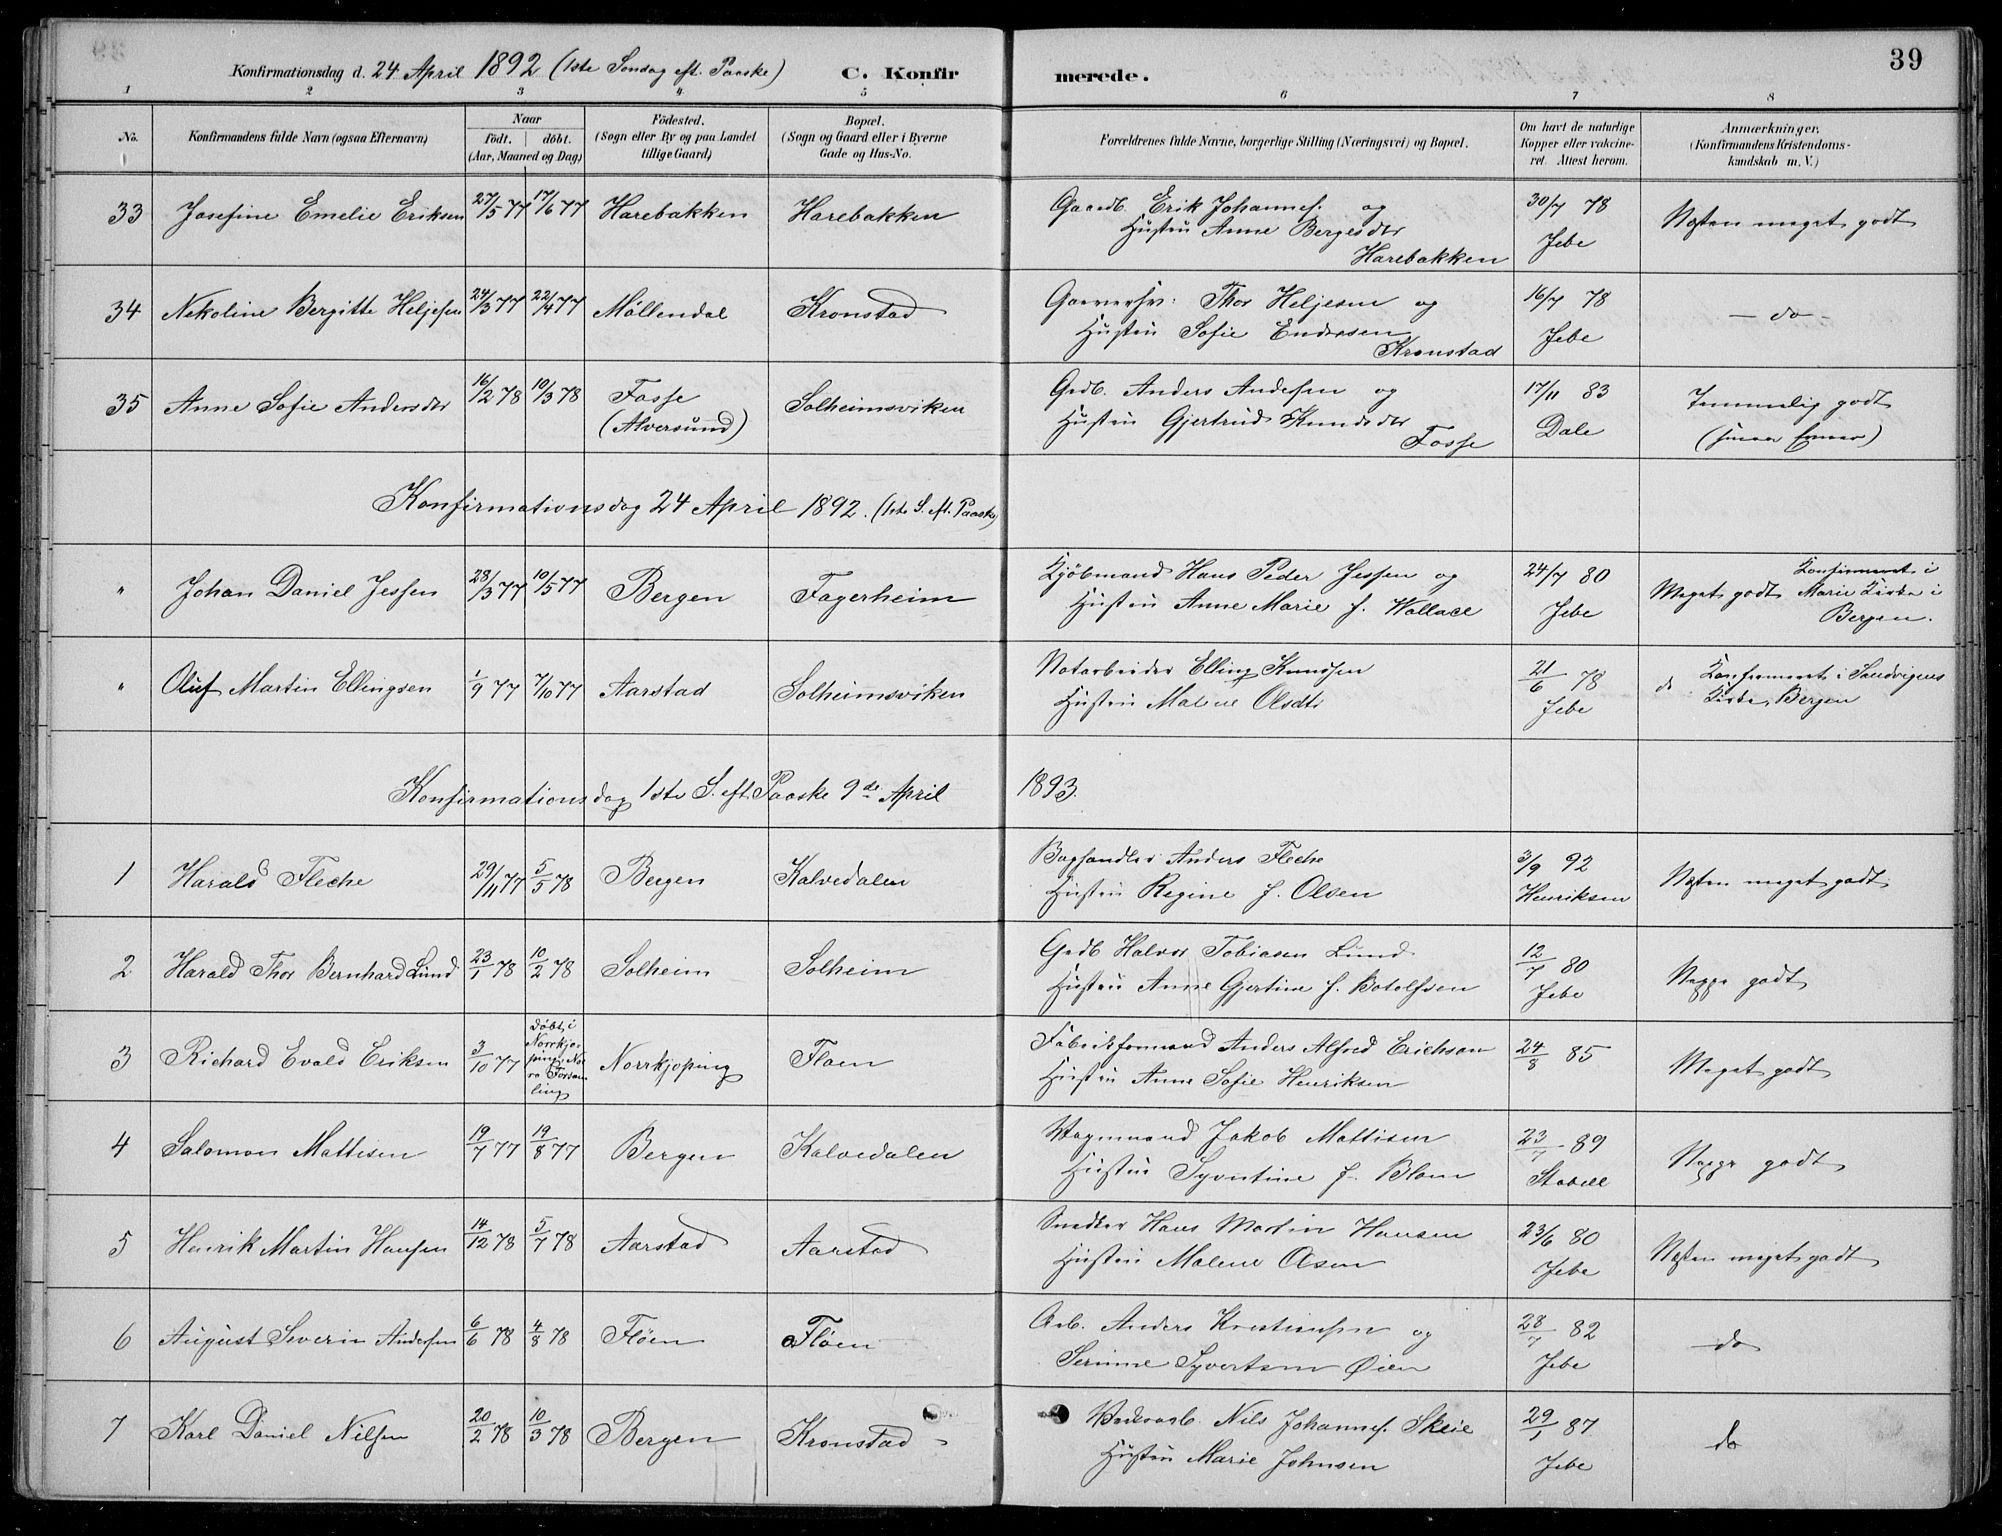 39
Konfirmationsdag d. 24 April 1892 (1ste Søndag eft. Paaske) C. Konfirmerede.
1 2 3 4 5 6 7 8
No. Konfirmandens fulde Navn (ogsaa Efternavn) Naar født. døbt. (Aar, Maaned og Dag) Fødested. (Sogn eller By og paa Landet tillige Gaard) Bopæl. (Sogn og Gaard eller i Byerne Gade og Hus-No. Forældrenes fulde Navne, borgerlige Stilling (Næringsvei) og Bopæl. Om havt de naturlige Kopper eller vakcineret. Attest herom. Anmærkninger. (Konfirmandens Kristendomskundskab m. V.)
33 Josefine Emelie Eriksen 27/5 77 17/6 77 Harebakken Harebakken Gaardb. Erik Johannes. og 30/7 78 Næsten meget godt
Hustru Anne Bergesdtr Jebe
Harebakken
34 Nekoline Bergitte Heljesen 24/3 77 22/4 77 Møllendal Kronstad Garversv: Thor Heljesen og 16/7 78 - do -
Hustru Sofie Endresen Jebe
Kronstad
35 Anne Sofie Andersdtr 16/2 78 10/3 78 Fosse Solheimsviken Grdb. Anders Andersen og 17/11 83 Temmelig godt
(Alversund) Hustru Gjertrud Knudsdtr Dale
Fosse
Konfirmationsdag 24 April 1892. (1ste S. eft. Paaske)
" Johan Daniel Jessen 28/3 77 10/5 77 Bergen Fagerheim Kjøbmand Hans Peder Jessen og 24/7 80 Meget godt Konfirmeret i
Hustru Anne Marie f. Wallace Jebe Marie Kirke i
Bergen.
" Oluf Martin Ellingsen 1/9 77 7/10 77 Aarstad Solheimsviken Notarbeider Elling Knudsen 21/6 78 do Konfirmeret i Sandvigens
Hustru Malene Olsdtr Jebe Kirke, Bergen
Konfirmationsdag 1ste S. eft. Paaske 9de April 1893.
1 Harald Fleche 29/11 77 5/5 78 Bergen Kalvedalen Boghandler Anders Fleche 3/9 92 Næsten meget godt
Hustru Regine f. Olsen Henriksen
2 Harald Thor Bernhard Lund 23/1 78 10/2 78 Solheim Solheim Grdb Halvor Tobiasen Lund 12/7 80 Neppe godt
Hustru Anne Gjertine f. Botolfsen Jebe
3 Richard Evald Eriksen 3/10 77 døbt i Norrkjøping, Norra Forsamling Norrkjøping Floen Fabrikformand Anders Alfred Erichson 24/8 85 Meget godt
Hustru Anne Sofie Henriksen
4 Salomon Mattisen 19/7 77 19/8 77 Bergen Kalvedalen Vognmand Jakob Mattisen 23/7 89 Neppe godt
Hustru Syvertine f. Blom Stabell
5 Henrik Martin Hansen 14/12 78 5/7 78 Aarstad Aarstad Snedker Hans Martin Hansen 23/6 80 Næsten meget godt
Hustru Malene Olsen Jebe
6 August Severin Andersen 6/6 78 4/8 78 Fløen Fløen Arb. Anders Kristiansen og 28/7 82 do
Serinne Syvertsen Øien Jebe
7 Karl Daniel Nilsen 20/2 78 10/3 78 Bergen Kronstad Nils Johannes. Skeie 29/1 87 do
Hustru Marie Johnsen Jebe